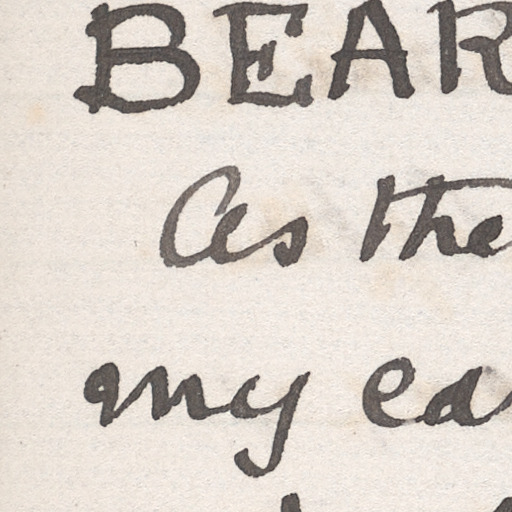 BEAR
As the
my ea